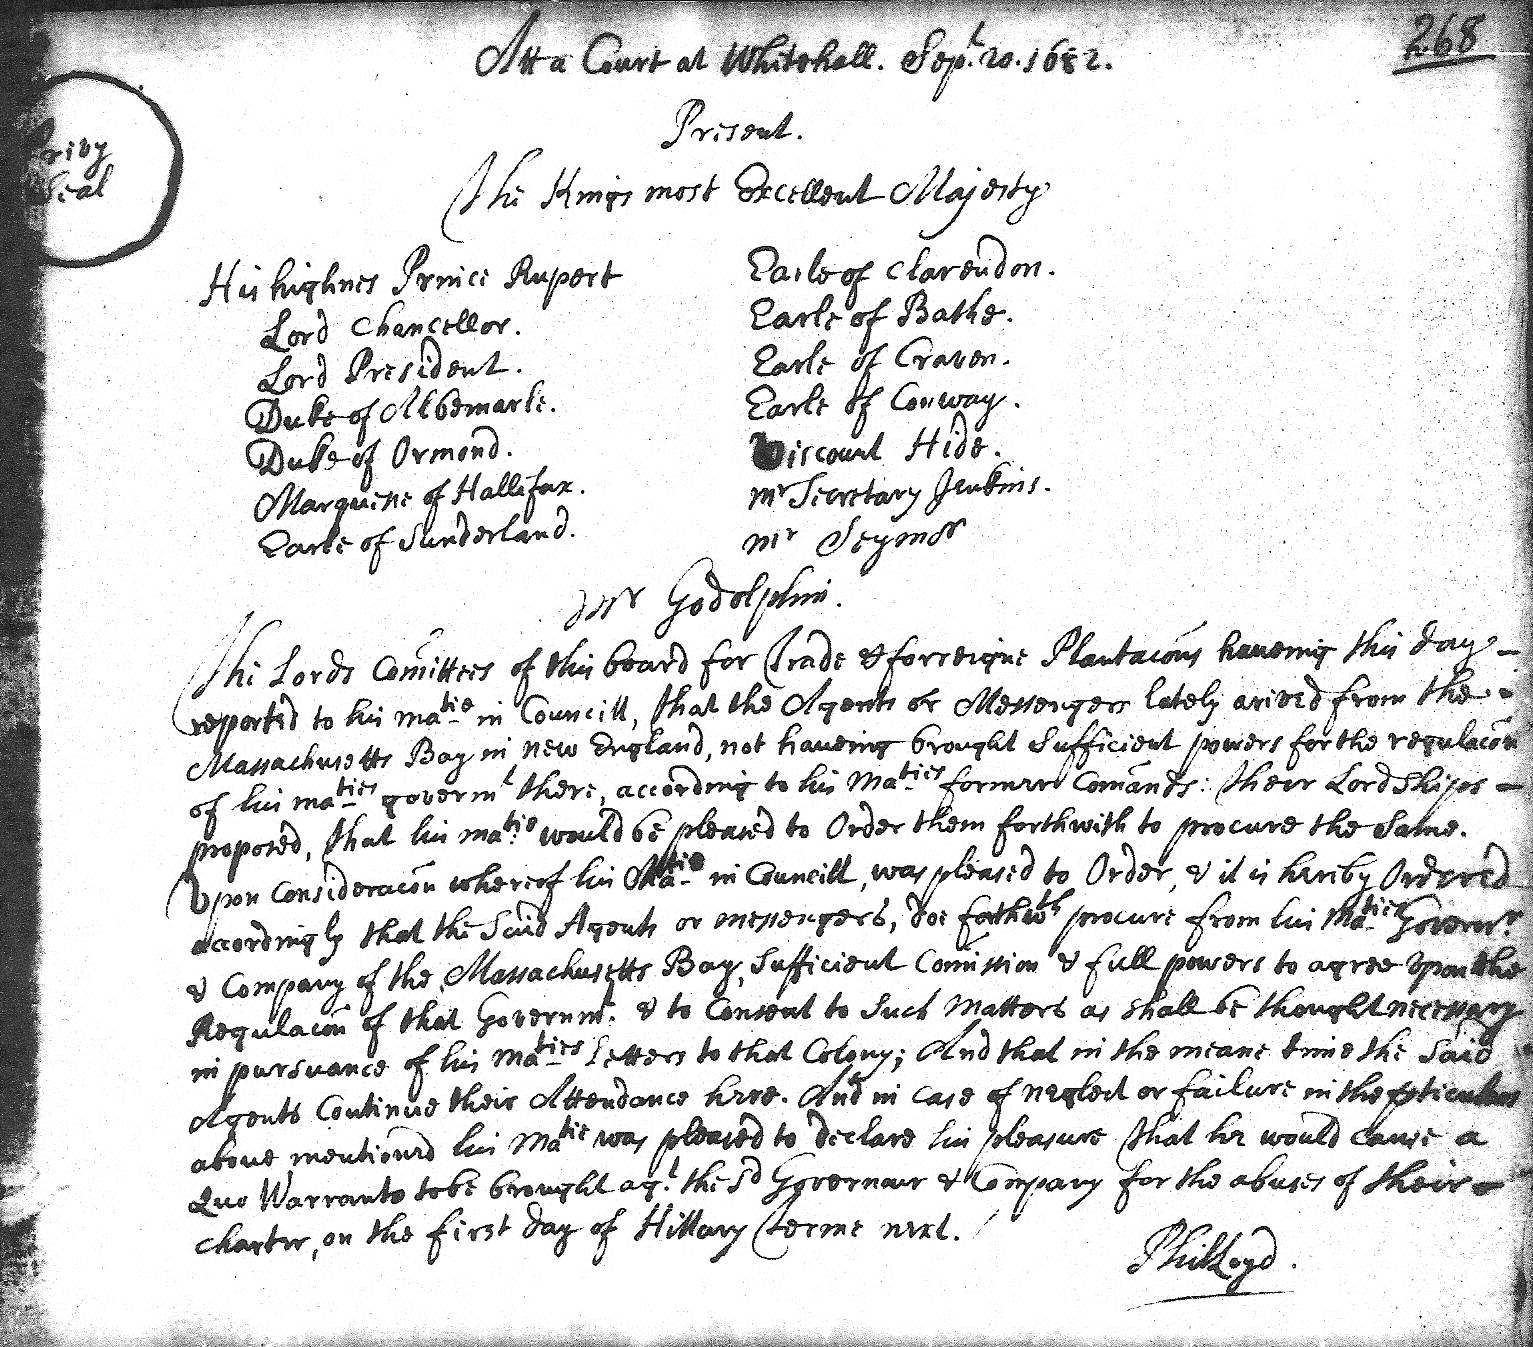 268
Att a Court at Whitehall. Sept. 20. 1682.
Present.
Privy
Seal
The Kings most Excellent Majesty
His highnes Prince Rupert
Lord Chancellor.
Lord President.
Duke of Albemarle.
Duke of Ormond.
Marquesse of Hallifax.
Earle of Sunderland.
Earle of Clarendon.
Earle of Bathe.
Earle of Craven.
Earle of Conway.
Viscount Hide.
Mr Secretary Jenkins.
Mr Seymor
Mr Godolphin.
The Lords Comittees of this board for Trade & forreigne Plantacons haueing this day
reported to his Matie in Councill, That the Agents or Messengers lately arived from the
Massachusetts Bay in New England, not haueing brought Sufficient powers for the regulacon
of his Maties governmt there, according to his Maties former Comands: Their LordShips
proposed, That his Matie would be pleased to Order them forthwith to procure the Same.
Vpon Consideracon whereof his Matie in Councill, was pleased to Order, & it is hereby Ordered
accordingly that the Said Agents or Messengers, doe forthwth procure from his Maties Governr.
& Company of the Massachusetts Bay, Sufficient Comission & full powers to agree Vpon the
Regulacon of that Governmt. & to Consent to Such Matters as Shall be thought necessary
in pursuance of his Maties Letters to that Colony; And that in the meane time the Said
Agents Continue their Attendance here. And in Case of neglect or failure in the pticulars
above mentioned his Matie was pleased to declare his pleasure That he would cause a
Quo Warranto to be brought agt. the Sd Governour & Company for the abuses of their
Charter, on the first day of Hillary Terme next.
Phi: Lloyd.